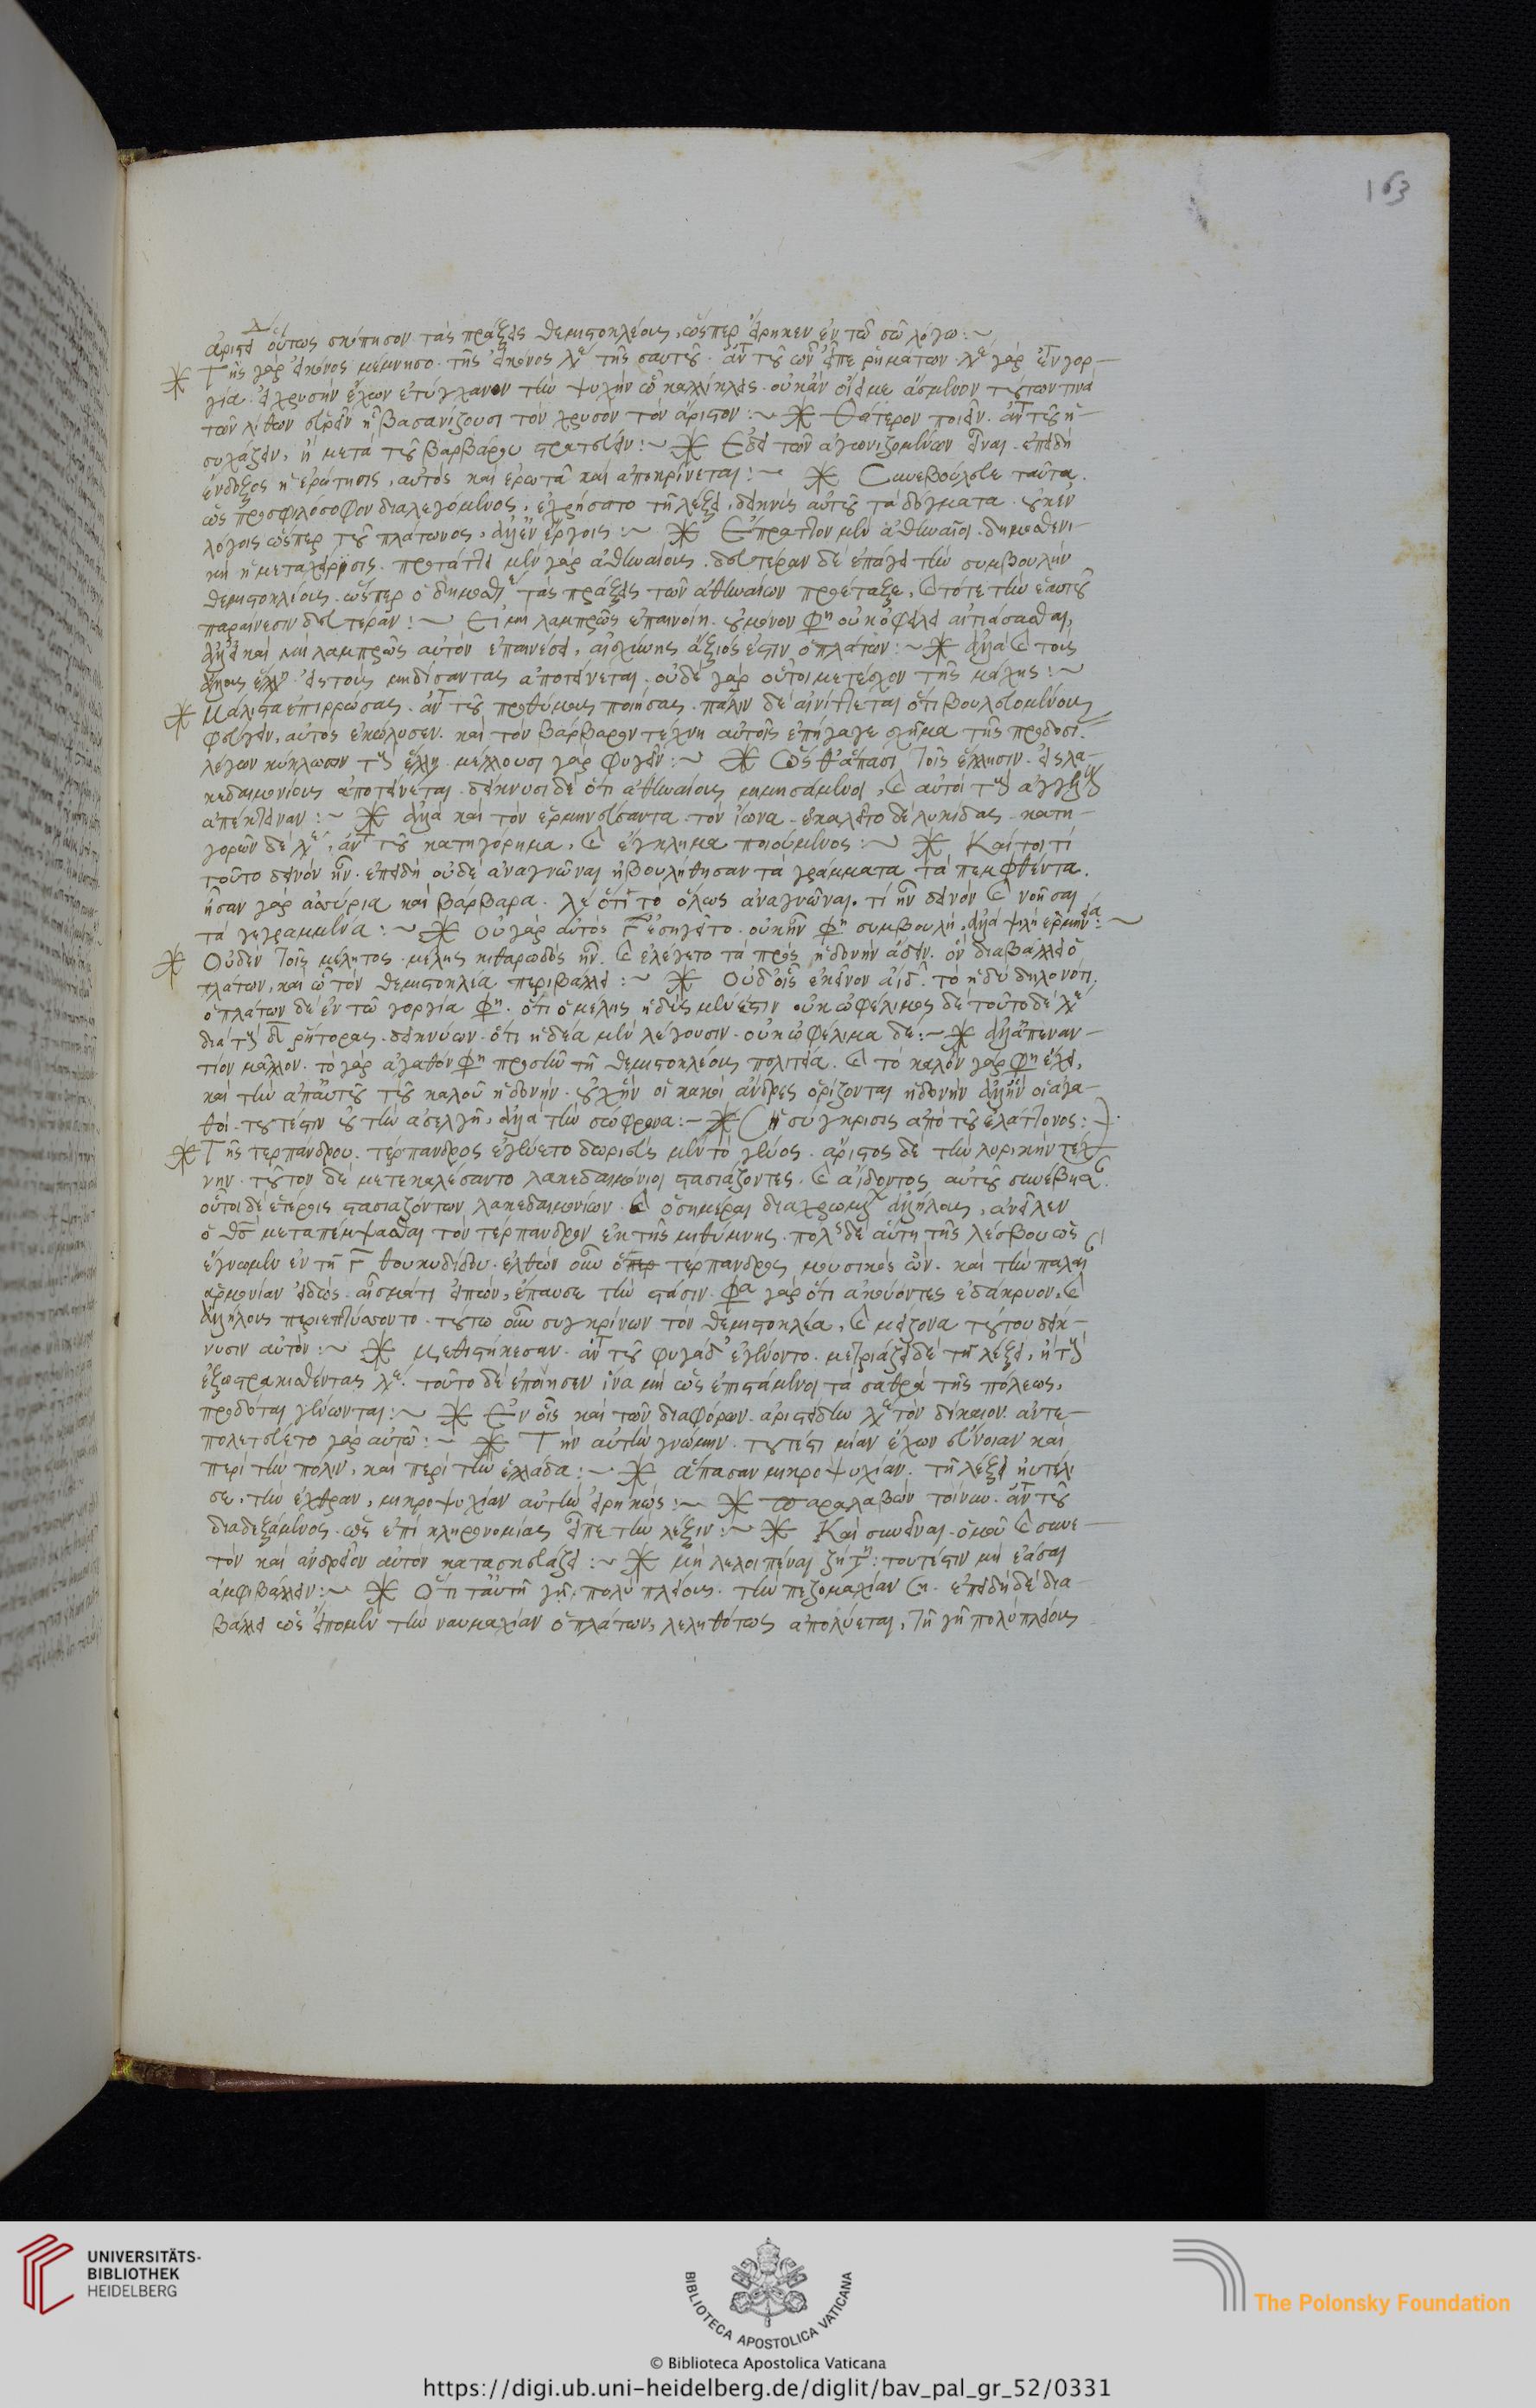 163
οὕτως σκόπησον τὰς πράξεις θεμιστοκλέους, ὥσπερ εἴρηκεν ἐν τῶ σῶ λόγω:~
Τῆς γὰρ εἰκόνος μέμνησο. τῆς εἰκόνος τῆς σαυτοῦ. τοῦ ὧν εἶπε ῥημάτων. γὰρ ἐν γορ-
γία. εἰ χρυσῆν ἔχων ἐτύγχανον τὴν ψυχὴν ὦ καλλίκλεις. οὐκ ἂν οἴει με ἄσμενον τούτων τινὰ
τῶν λίθων εὑρεῖν ἧ βασανίζουσι τὸν χρυσὸν τὸν ἄριστον:~ Θάτερον ποιεῖν. τοῦ ἡ-
συχάζειν, ἢ μετὰ τοῦ βαρβάρου στρατεύειν:~ τῶν ἀγωνιζομένων εἶναι. ἐπειδὴ
ἔνδοξος ἡ ἐρώτησις, αὐτὸς καὶ ἐρωτᾶ καὶ ἀποκρίνεται:~ Συνεβούλευε ταῦτα.
ὡς πρὸς φιλόσοφον διαλεγόμενος, ἐχρήσατο τῆ λέξει, δεικνὺς αὐτοῦ τὰ δόγματα. οὐκ ἐν
λόγοις ὥσπερ τοῦ πλάτωνος, ἀλλ' ἐν ἔργοις:~ Ἔπραττον μὲν ἀθηναῖοι. δημοσθενι-
κὴ ἡ μεταχείρισις. προτάττει μὲν γὰρ ἀθηναίους. δευτέραν δὲ ἐπάγει τὴν συμβουλὴν
θεμιστοκλέους. ὥσπερ ὁ δημοσθ τὰς πράξεις τῶν ἀθηναίων προέταξε, καὶ τότε τὴν ἑαυτοῦ
παραίνεσιν δευτέραν:~ Εἰ μὴ λαμπρῶς ἐπαινοίη. οὐ μόνον φη οὐκ ὀφείλει αἰτιάσασθαι,
ἀλλ' εἰ καὶ μὴ λαμπρῶς αὐτὸν ἐπαινέσει, αἰσχύνης ἄξιός ἐστιν ὁ πλάτων:~ ἀλλὰ καὶ τοῖς
ἄλλοις εἰς τοὺς μηδίσαντας ἀποτείνεται. οὐδὲ γὰρ οὗτοι μετέσχον τῆς μάχης:~
Μάλιστα ἐπιρρώσας. τοῦ προθύμους ποιήσας. πάλιν δὲ αἰνίττεται ὅτι βουλευομένους
φεύγειν, αὐτὸς ἐκώλυσεν. καὶ τὸν βάρβαρον τέχνη αὐτοῖς ἐπήγαγε σχῆμα τῆς προδοσί.
λέγων κύκλωσον μέλλουσι γὰρ φυγεῖν:~ Ὥσθ' ἅπασι τοῖς ἕλλησιν. εἰς λα-
κεδαιμονίους ἀποτείνεται. δείκνυσι δὲ ὅτι ἀθηναίους μιμησάμενοι, καὶ αὐτοὶ
ἀπέκτειναν:~ ἀλλὰ καὶ τὸν ἑρμηνεύσαντα. τὸν ἴωνα. ἐκαλεῖτο δὲ λυκίδας. κατη-
γορῶν δὲ τοῦ κατηγόρημα, καὶ ἔγκλημα ποιούμενος:~ Καί τοι τί
τοῦτο δεινὸν ἦν. ἐπειδὴ οὐδὲ ἀναγνῶναι ἠβουλήθησαν τὰ γράμματα τὰ πεμφθέντα.
ἦσαν γὰρ ἀσσύρια καὶ βάρβαρα. λέ ὅτι τὸ ὅλως ἀναγνῶναι. τί ἦν δεινὸν καὶ νοῆσαι
τὰ γεγραμμένα:~ Οὐ γὰρ αὐτὸς ἐσηγεῖτο. οὐκ ἦν φη συμβουλὴ, ἀλλὰ ψιλὴ ἑρμηνεία:~
Οὐδὲν τοῖς μέλητος. μέλης κιθαρωδὸς ἦν. καὶ ἐλέγετο τὰ πρὸς ἡδονὴν ἄδειν. ὃν διαβάλλει ὁ
πλάτων, καὶ ὧ τὸν θεμιστοκλέα περιβάλλει:~ Οὐδ' οἷς ἐκεῖνον τὸ ἡδὺ δηλονότι.
ὁ πλάτων δὲ ἐν τῶ γοργία φη. ὅτι ὁ μέλης ἡδὺς μὲν ἐστιν οὐκ ὠφέλιμος δὲ τοῦτο δὲ
διὰ ῥήτορας. δεικνύων. ὅτι ἡδέα μὲν λέγουσιν. οὐκ ὠφέλιμα δε:~ ἀλλ' ἅπεναν-
τίον μᾶλλον. τὸ γὰρ ἀγαθὸν φη προσῆν τῆ θεμιστοκλέους πολιτεία. καὶ τὸ καλὸν γὰρ φη ἔχει,
καὶ τὴν ἀπ' αὐτοῦ τοῦ καλοῦ ἡδονήν. οὐχ ἣν οἱ κακοὶ ἄνδρες ὁρίζονται ἡδονὴν ἀλλ' ἣν οἱ ἀγα-
θοί. τουτέστιν οὐ τὴν ἀσελγῆ, ἀλλὰ τὴν σώφρονα:~ ἡ σύγκρισις ἀπὸ τοῦ ἐλάττονος:
Τῆς τερπάνδρου. τέρπανδρος ἐγένετο δωριεὺς μὲν τὸ γένος. ἄριστος δὲ τὴν λυρικὴν τέχ-
νην. τοῦτον δὲ μετεκαλέσαντο λακεδαιμόνιοι στασιάζοντες. καὶ ἄδοντος αὐτοῦ
στασιαζόντων λακεδαιμονίων. καὶ ὁσημέραι ἀλλήλοις, ἀνεῖλεν
ὁ θς μεταπέμψασθαι τὸν τέρπανδρον ἐκ τῆς μηθύμνης. δὲ αὕτη τῆς λέσβου ὡς
ἔγνωμεν ἐν τῆ γ θουκυδίδου. ἐλθὼν οὖν ὁ τέρπανδρος μουσικὸς ὤν. καὶ τὴν
ἁρμονίαν εἰδὼς. ἄσματι εἰπὼν, ἔπαυσε τὴν στάσιν. γὰρ ὅτι ἀκούοντες ἐδάκρυον, καὶ
ἀλλήλους περιεπτύσσοντο. τούτω οὖν συγκρίνων τὸν θεμιστοκλέα, καὶ μείζονα τούτου δεικ-
νυσιν αὐτόν:~ Μεθιστήκεσαν. τοῦ φυγάδ ἐγένοντο. μετριάζει δὲ τῆ λέξει, ἢ
ἐξοστρακισθέντας τοῦτο δὲ ἐποίησεν ἵνα μὴ ὡς ἐπιστάμενοι τὰ σαθρὰ τῆς πόλεως,
προδόται γένωνται:~ Ἐν οἷς καὶ τῶν διαφόρων. ἀριστείδην τὸν δίκαιον. ἀντε-
πολιτεύετο γὰρ αὐτῶ:~ Τὴν αὐτὴν γνώμην. τουτέστι μίαν ἔχων εὔνοιαν καὶ
περὶ τὴν πόλιν, καὶ περὶ τὴν ἑλλάδα:~ ἅπασαν μικροψυχίαν. τῆ λέξει ηὐτέλι
σε, τὴν ἔχθραν, μικροψυχίαν αὐτὴν εἰρηκώς:~ παραλαβὼν τοίνυν. τοῦ
διαδεξάμενος. ὡς ἐπὶ κληρονομίας εἶπε τὴν λέξιν:~ Καὶ συνεῖναι. ὁμοῦ καὶ συνε-
τὸν καὶ ἀνδρεῖον αὐτὸν κατασκευάζει:~ μὴ λελοιπέναι τουτέστιν μὴ ἐάσαι
ἀμφιβάλλειν:~ Ὅτι ταύτη γῆ. πολὺ πλέους. τὴν πεζομαχίαν ἐπειδὴ δὲ δια-
βάλλει ὡς εἴπομεν τὴν ναυμαχίαν ὁ πλάτων, λεληθότως ἀπολύεται, τῆ γῆ πολὺ πλέους
UNIVERSITÄTS-
BIBLIOTHEK
HEIDELBERG
BIBLIOTECA APOSTOLICA VATICANA
The Polonsky Foundation
© Biblioteca Apostolica Vaticana
https://digi.ub.uni-heidelberg.de/diglit/bav_pal_gr_52/0331